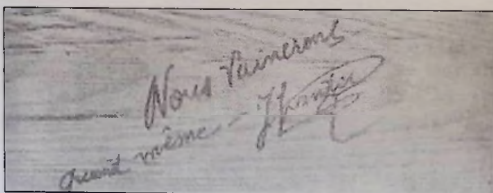 Nous Vaincrons
quand même -